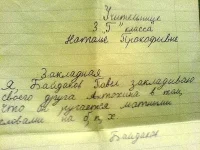 Учительнице
3 "Г" класса
Наталье Прокофьевне
Закладная
Я, Байдаков Павел закладываю
своего друга Антохина в том,
что он ругается матными
словами на б, п, х
Байдаков